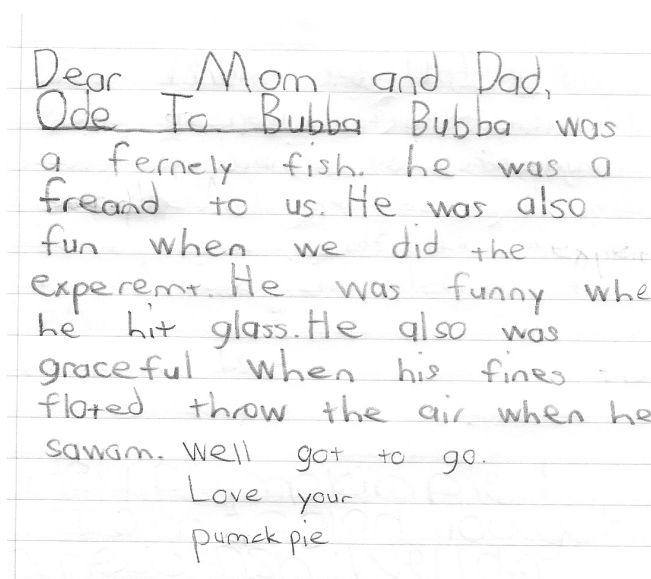 Dear Mom and Dad,
Ode To Bubba Bubba was
a fernely fish. he was a
freand to us. He was also
fun when we did the
experemt. He was funny whe
he hit glass. He also was
graceful when his fines
floted throw the air when he
sawam. Well got to go.
Love your
pumck pie